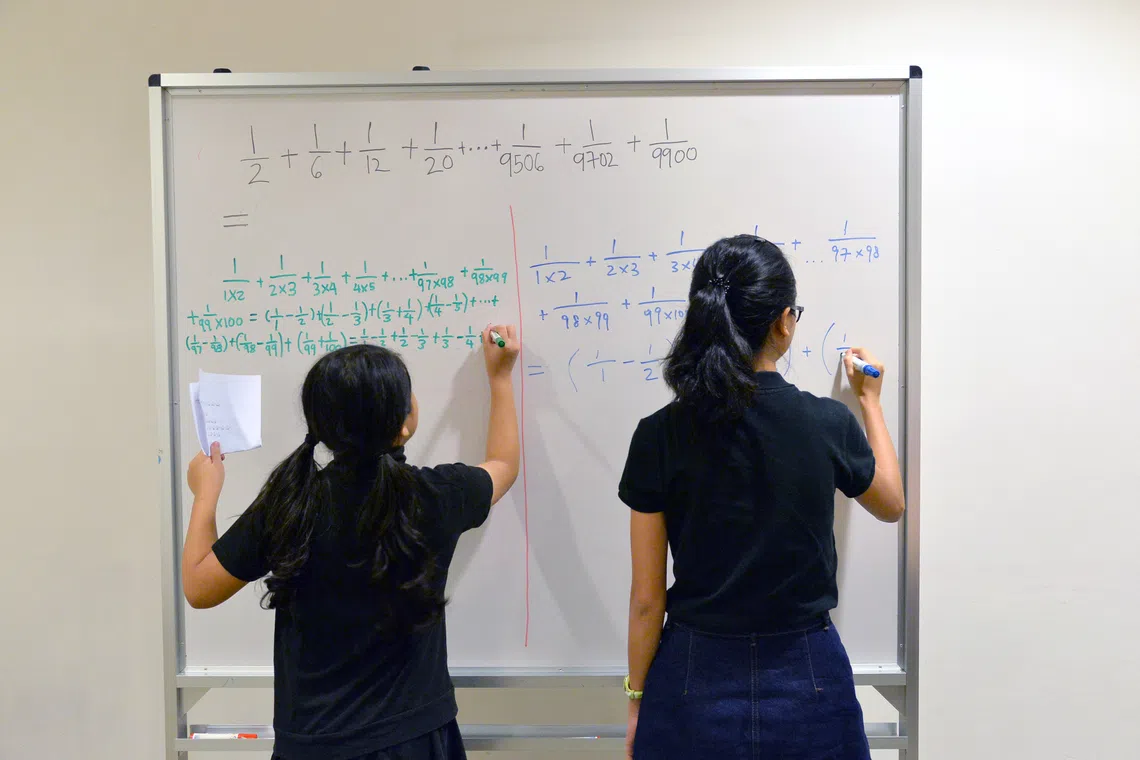 1/2 + 1/6 + 1/12 + 1/20 + ... + 1/9506 + 1/9702 + 1/9900
=
1/1×2 + 1/2×3 + 1/3×4 + 1/4×5 + ... + 1/97×98 + 1/98×99
+ 1/99×100 = (1/1 - 1/2) + (1/2 - 1/3) + (1/3 + 1/4) + (1/4 - 1/5) + ... +
(1/97 - 1/98) + (1/98 - 1/99) + (1/99 + 1/100) = 1/1 - 1/2 + 1/2 - 1/3 + 1/3 - 1/4 +
1/1×2 + 1/2×3 + 1/3× + ... 1/97×98
+ 1/98×99 + 1/99×10
= (1/1 - 1/2 ) + (1/